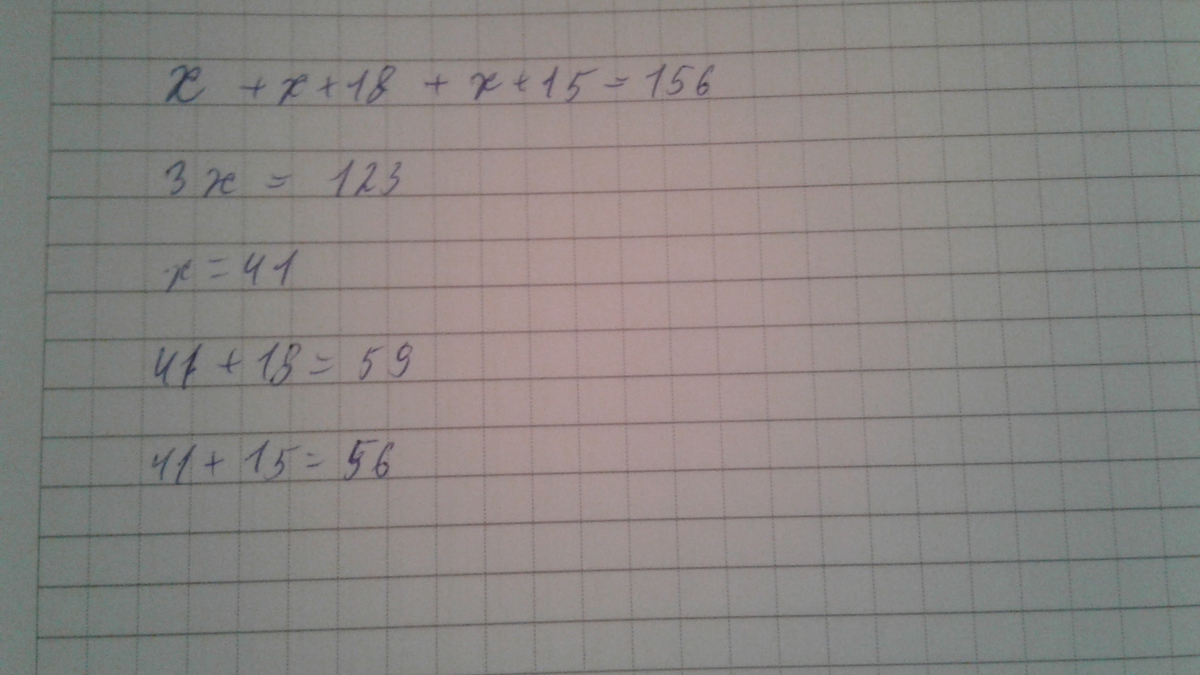 x + x + 18 + x + 15 = 156
3x = 123
x = 41
41 + 18 = 59
41 + 15 = 56